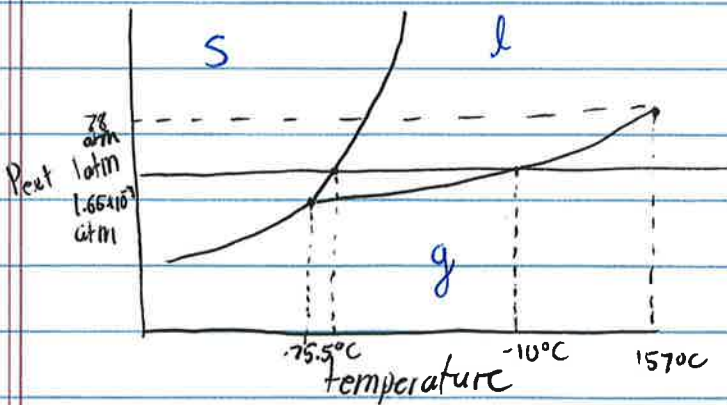 S l
78
atm
Pext 1atm
1.65x10⁻³
atm
g
-75.5°C -10°C 157°C
temperature